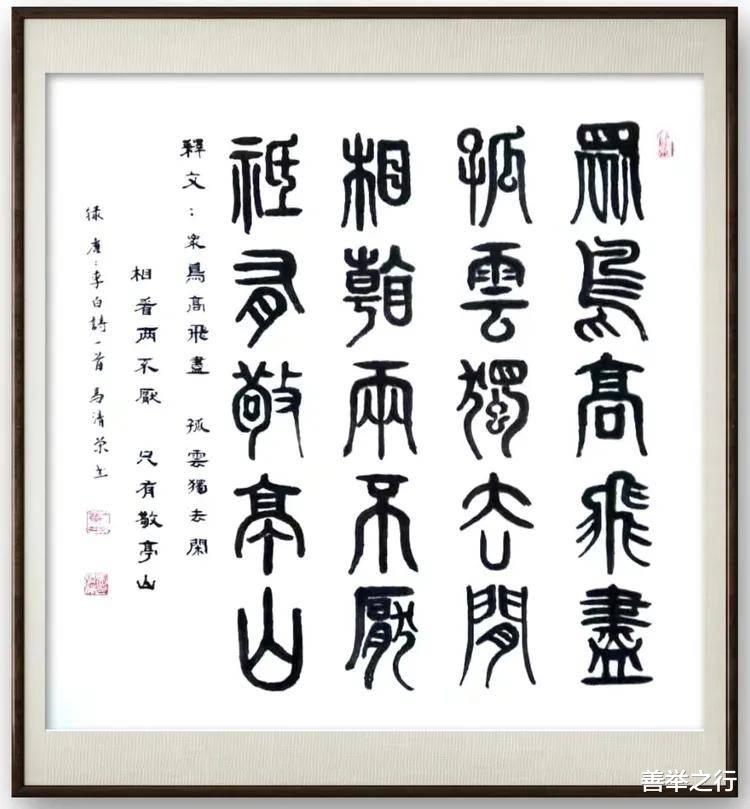 眾鳥高飛盡
孤雲獨去閒
相看兩不厭
祗有敬亭山
釋文：眾鳥高飛盡 孤雲獨去閑
相看两不厭 只有敬亭山
唐：李白詩一首 馬清荣书
善举之行